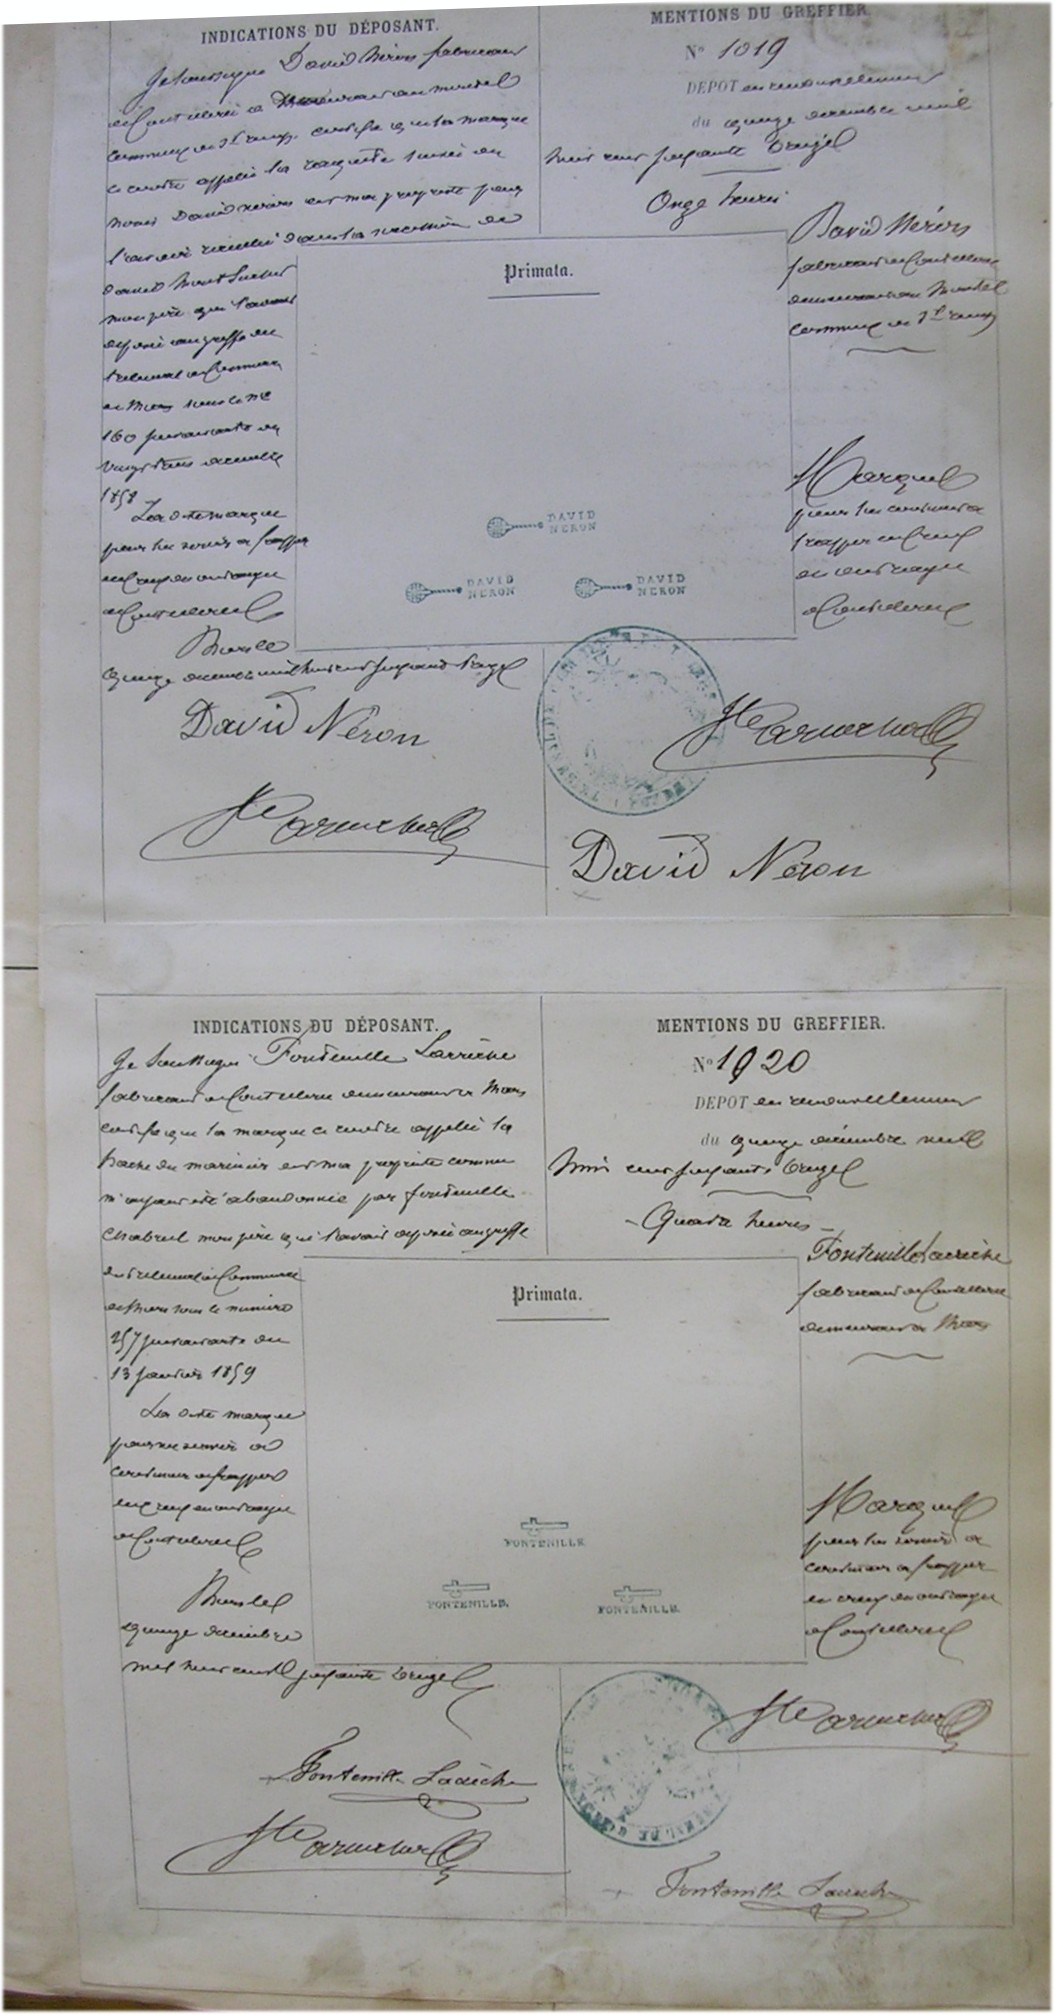 INDICATIONS DU DÉPOSANT.
Je soussigné David Néron fabricant
de Coutellerie demeurant au
commune de St Remy certifie que la marque
ci contre appelée la raquette suivie du
nom David Néron est ma propriété pour
l'avoir recueillie dans la succession de
David
mon père qui l'avait
déposée au greffe du
tribunal de Commerce
de Thiers sous le No
160 suivant acte du
vingt décembre
1858
La dite marque
pour servir à frapper
en creux en ouvrages
de Coutellerie
Thiers le
quinze décembre mil huit cent soixante treize
David Néron
MENTIONS DU GREFFIER.
No 1019
DEPOT en renouvellement
du quinze décembre mil
huit cent soixante treize
Onze heures
David Néron
fabricant de Coutellerie
demeurant au
commune de St Remy
Primata.
DAVID
NERON
DAVID
NERON
DAVID
NERON
Marque
pour lui servir à
frapper en creux
en ouvrages
de Coutellerie
David Néron
INDICATIONS DU DÉPOSANT.
Je soussigné Fontenille Larriche
fabricant de Coutellerie demeurant à Thiers
certifie que la marque ci contre appelée la
hache du marinier est ma propriété comme
m'ayant été abandonnée par Fontenille
Chabrol mon père qui l'avait déposée au greffe
du tribunal de Commerce
de Thiers sous le numéro
257 suivant acte du
13 janvier 1859
La dite marque
pour me servir à
frapper
en creux en ouvrages
de Coutellerie
Thiers le
quinze décembre
mil huit cent soixante treize
MENTIONS DU GREFFIER.
No 1020
DEPOT en renouvellement
du quinze décembre mil
huit cent soixante treize
Quatre heures
Fontenille Larriche
fabricant de Coutellerie
demeurant à Thiers
Primata.
FONTENILLE
FONTENILLE.
FONTENILLE.
Marque
pour lui servir à
frapper
en creux en ouvrages
de Coutellerie
Fontenille
Fontenille